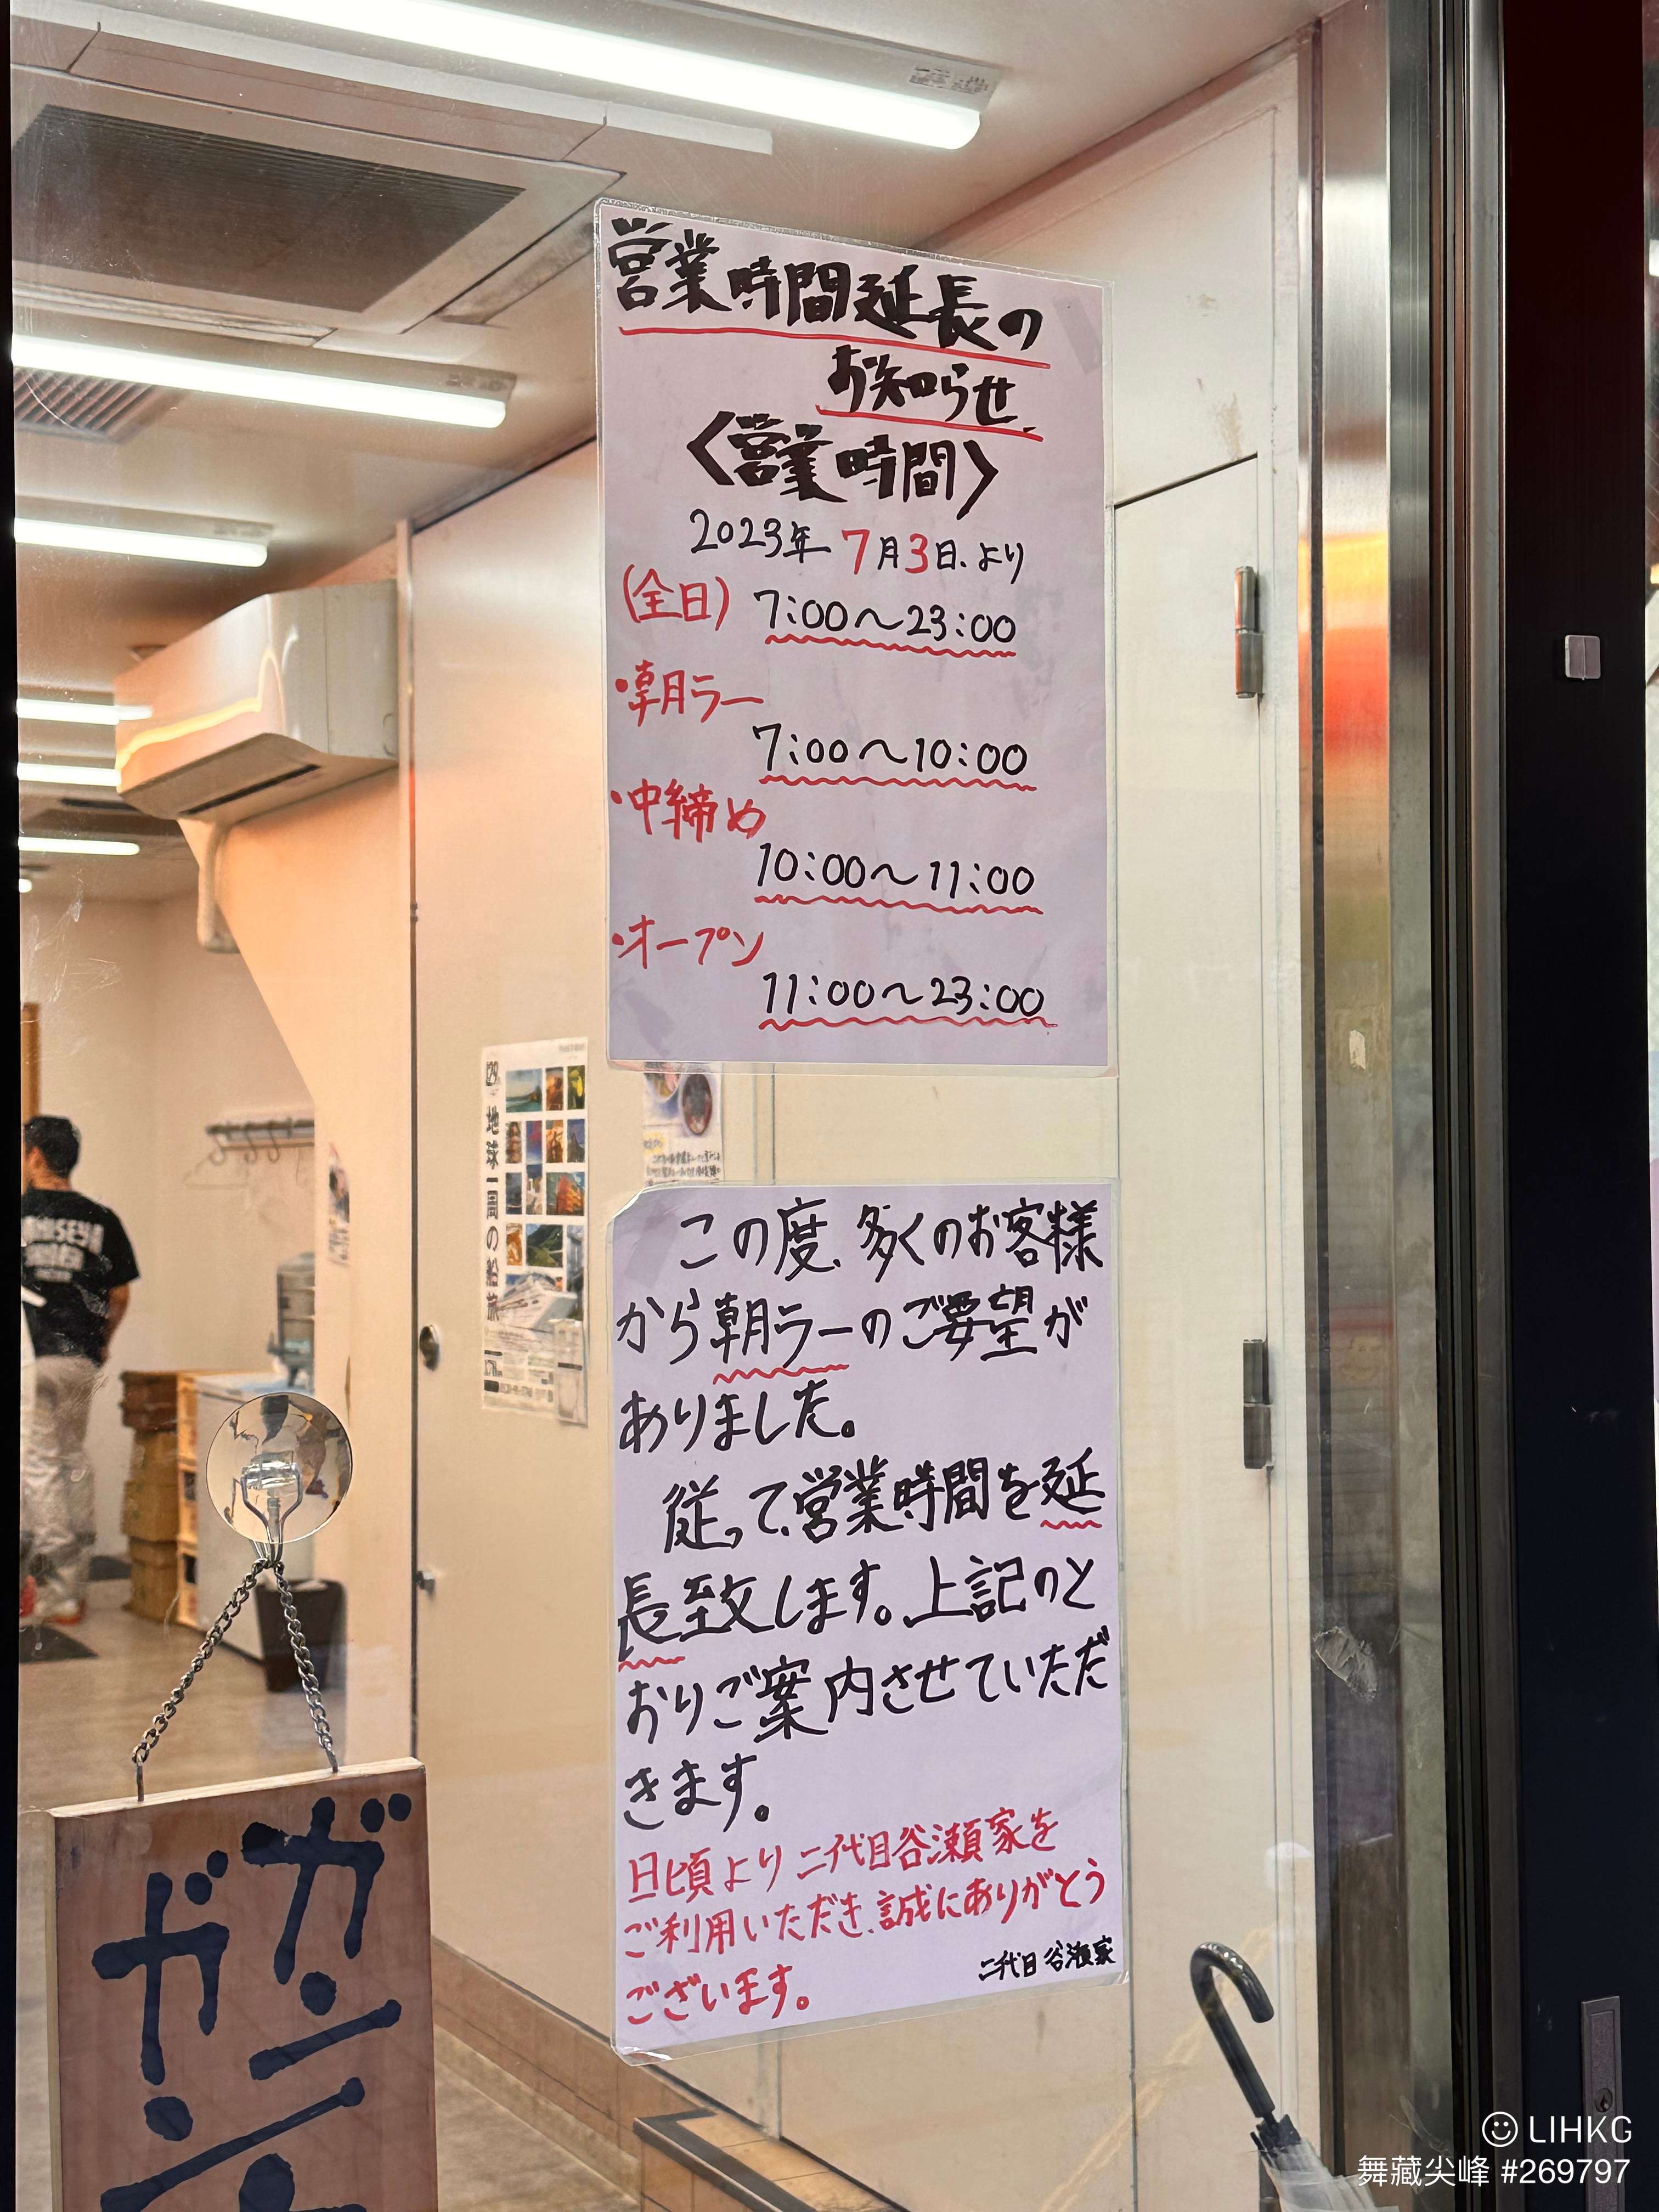 営業時間延長の
お知らせ
〈営業時間〉
2023年7月3日より
(全日) 7:00〜23:00
・朝ラー
7:00〜10:00
・中締め
10:00〜11:00
・オープン
11:00〜23:00
地球一周の船旅
この度、多くのお客様
から朝ラーのご要望が
ありました。
従って、営業時間を延
長致します。上記のと
おりご案内させていただ
きます。
日頃より二代目谷瀬家を
ご利用いただき、誠にありがとう
ございます。
二代目 谷瀬家
LIHKG
舞藏尖峰 #269797